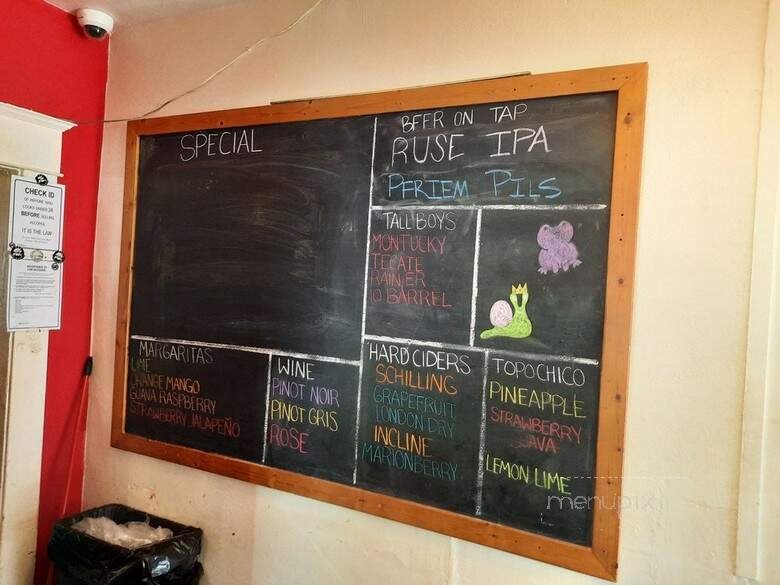 SPECIAL
BEER ON TAP
RUSE IPA
PFRIEM PILS
TALL BOYS
MONTUCKY
TECATE
RAINIER
10 BARREL
MARGARITAS
LIME
ORANGE MANGO
GUAVA RASPBERRY
STRAWBERRY JALAPEÑO
WINE
PINOT NOIR
PINOT GRIS
ROSE
HARD CIDERS
SCHILLING
GRAPEFRUIT
LONDON DRY
INCLINE
MARIONBERRY
TOPO CHICO
PINEAPPLE
STRAWBERRY
GUAVA
LEMON LIME
CHECK ID
OF ANYONE WHO
LOOKS UNDER 26
BEFORE SELLING
ALCOHOL
IT IS THE LAW
menupix